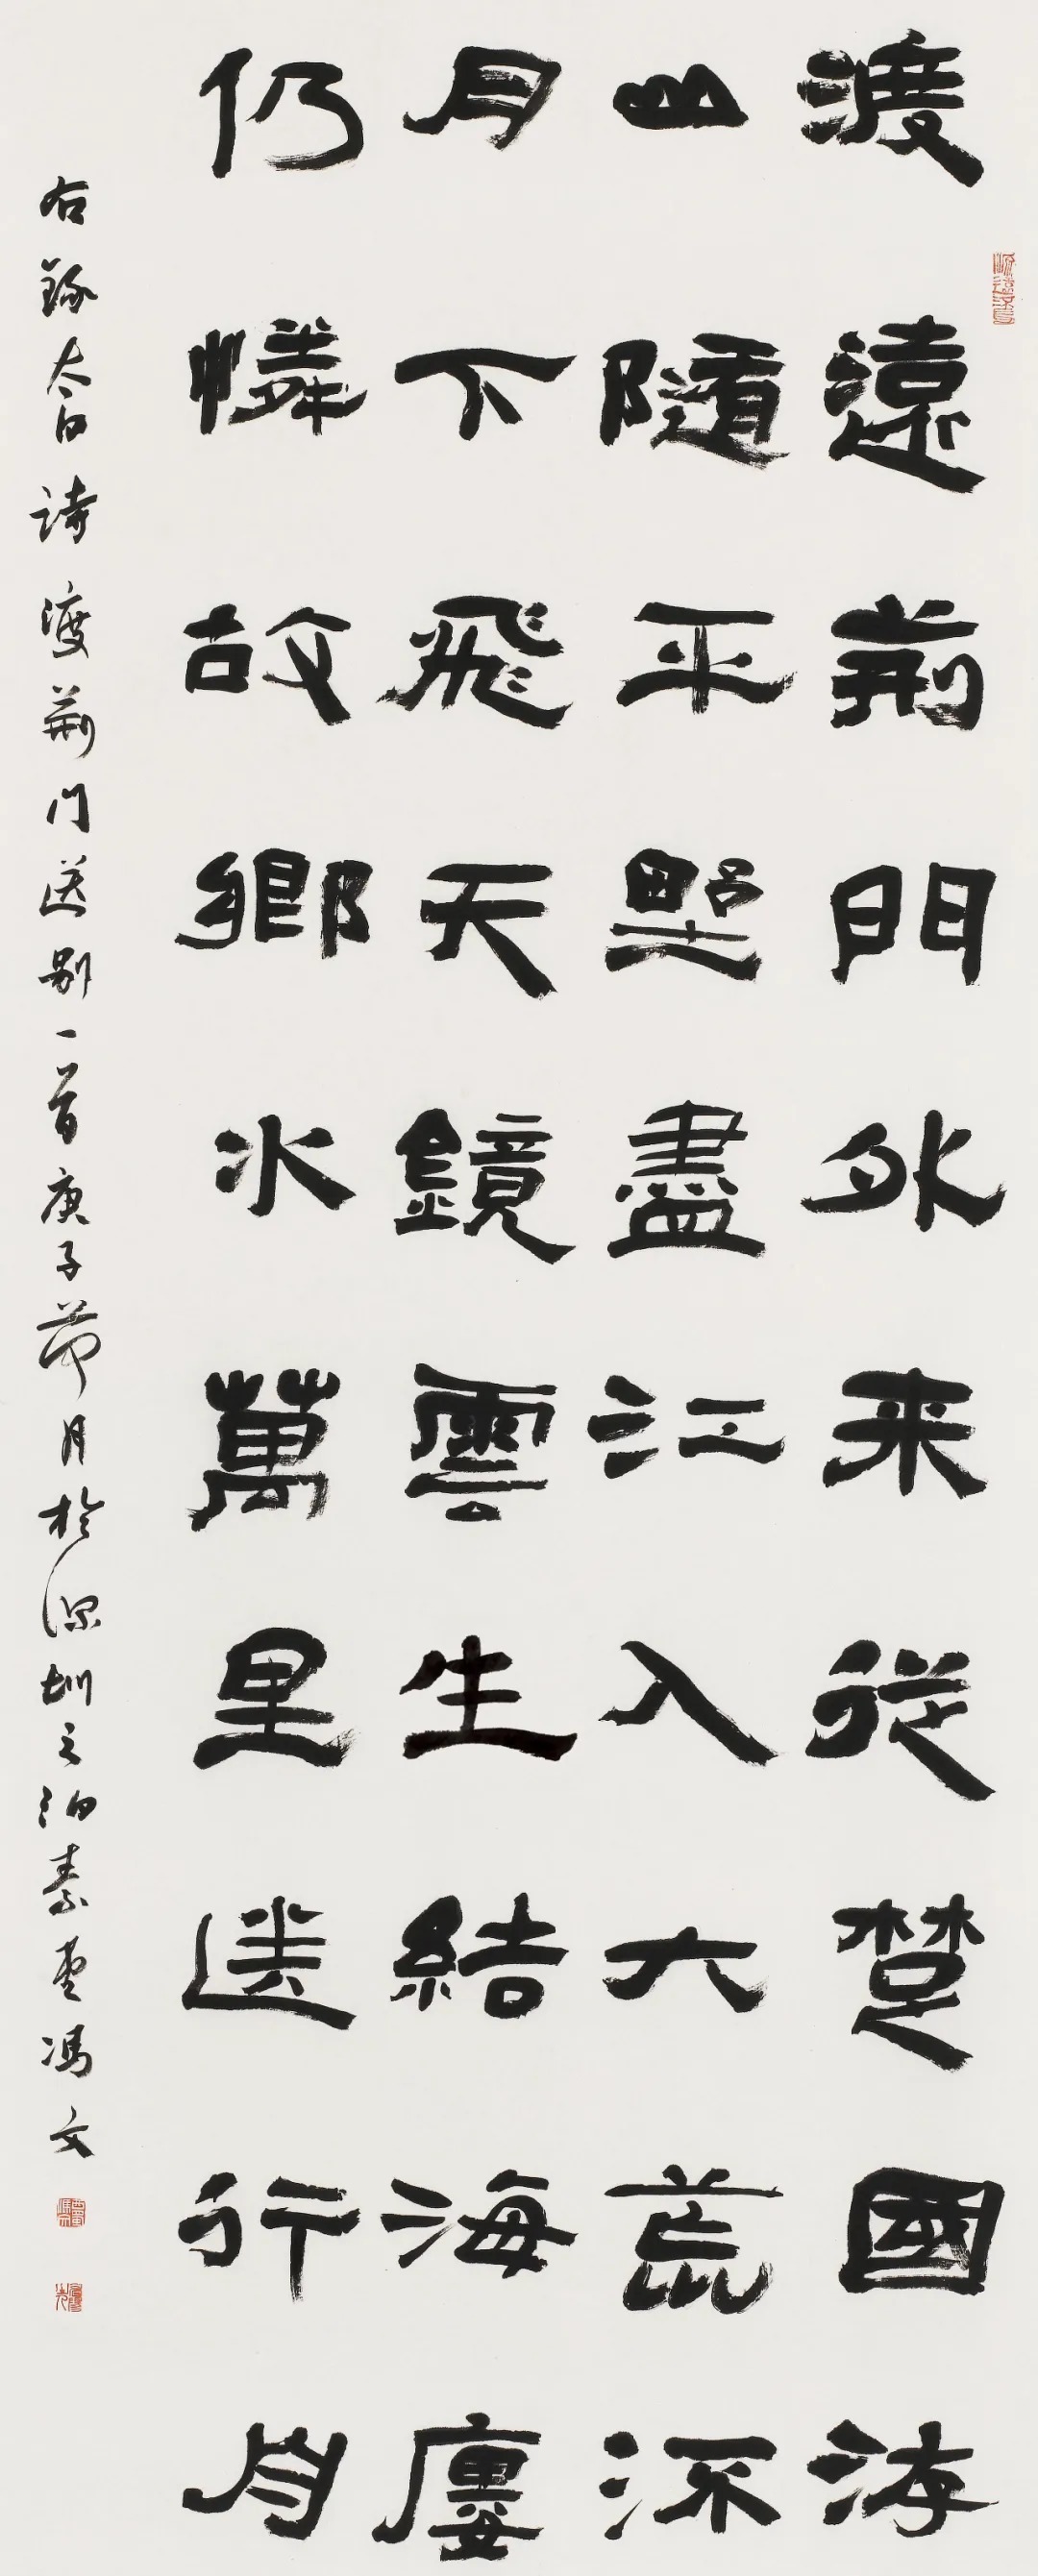 渡遠荊門外来從楚國游
山隨平野盡江入大荒流
月下飛天鏡雲生結海廔
仍憐故鄉水萬里送行舟
右錄太白詩渡荊門送別一首庚子荷月於深圳之泊素堂馮文